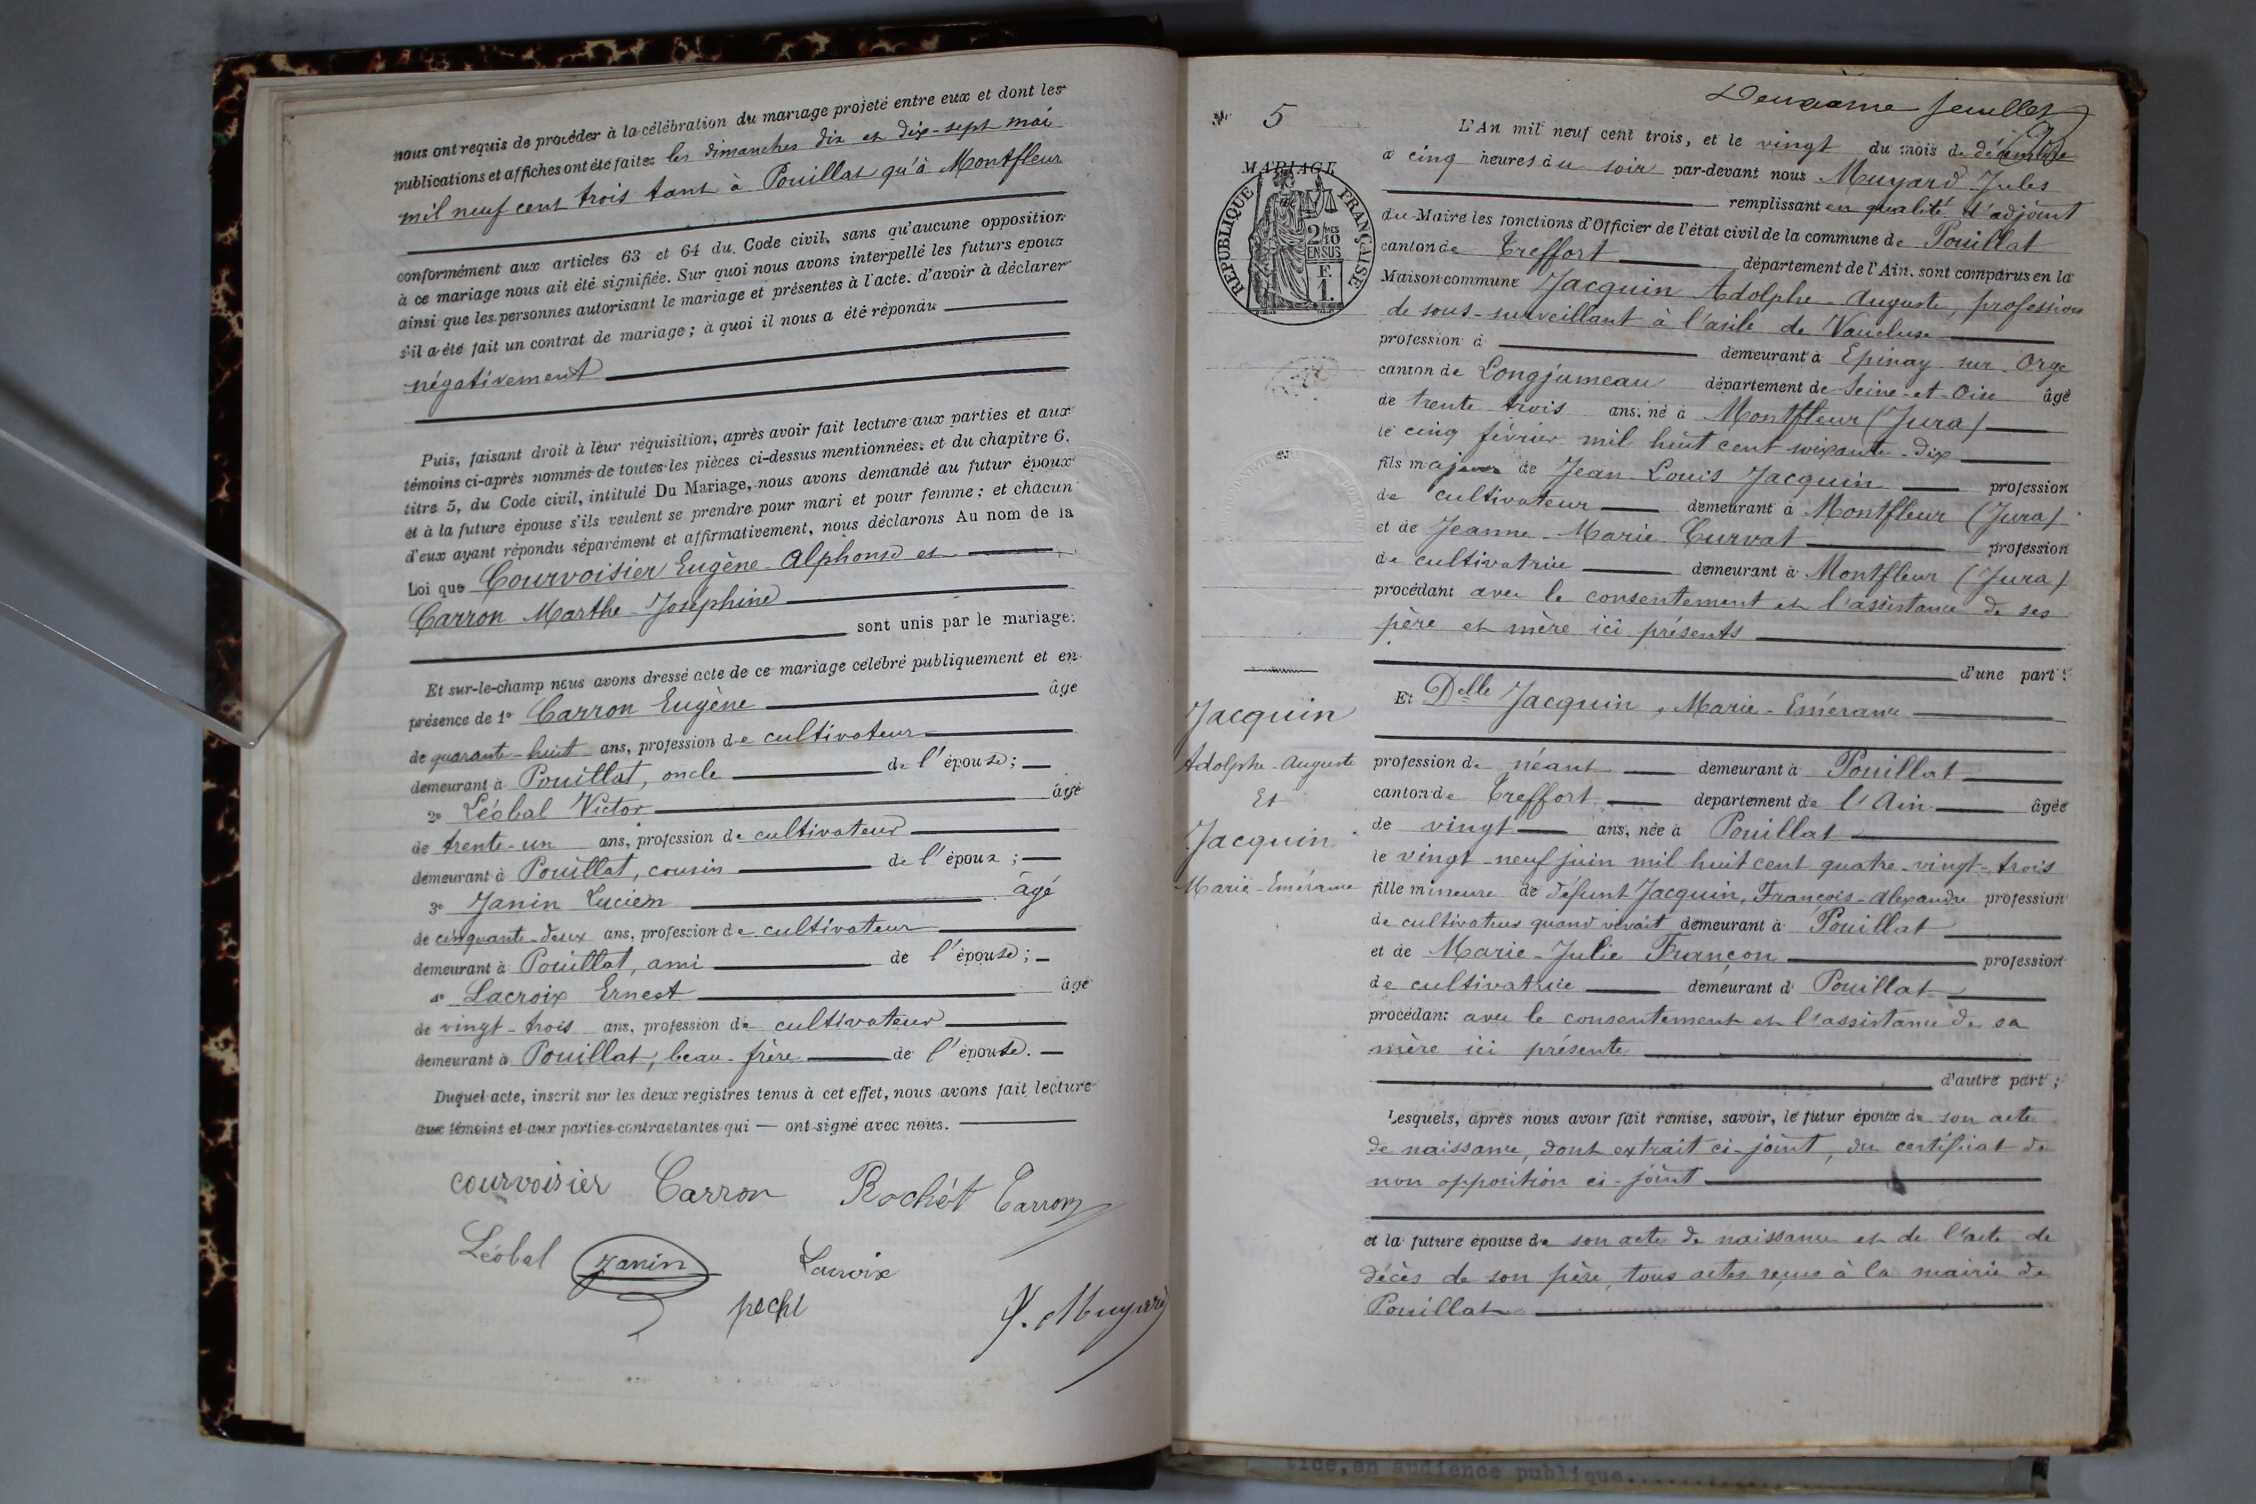 nous ont requis de procéder à la célébration du mariage projeté entre eux et dont les
publications et affiches ont été faites les dimanches dix et dix-sept mai
mil neuf cent trois tant à Pouillat qu'à Montfleur
conformément aux articles 63 et 64 du Code civil, sans qu'aucune opposition
à ce mariage nous ait été signifiée. Sur quoi nous avons interpellé les futurs epoux
ainsi que les personnes autorisant le mariage et présentes à l'acte. d'avoir à déclarer
s'il a été fait un contrat de mariage ; à quoi il nous a été répondu
négativement
Puis, faisant droit à leur réquisition, après avoir fait lecture aux parties et aux
témoins ci-après nommés de toutes les pièces ci-dessus mentionnées. et du chapitre 6.
titre 5, du Code civil, intitulé Du Mariage, nous avons demandé au futur époux
et à la future épouse s'ils veulent se prendre pour mari et pour femme ; et chacun
d'eux ayant répondu séparément et affirmativement, nous déclarons Au nom de la
Loi que Courvoisier Eugène Alphonse et
Carron Marthe-Joséphine
sont unis par le mariage.
Et sur-le-champ nous avons dressé acte de ce mariage célébré publiquement et en
présence de 1° Carron Eugène âgé
de quarante-huit ans, profession de cultivateur
demeurant à Pouillat, oncle de l'épouse ;
2° Léobal Victor âgé
de trente-un ans, profession de cultivateur
demeurant à Pouillat, cousin de l'époux ;
3° Janin Lucien âgé
de cinquante-deux ans, profession de cultivateur
demeurant à Pouillat, ami de l'épouse ;
4° Lacroix Ernest âgé
de vingt-trois ans, profession de cultivateur
demeurant à Pouillat, beau-frère de l'épouse.
Duquel acte, inscrit sur les deux registres tenus à cet effet, nous avons fait lecture
aux témoins et aux parties contractantes qui — ont signé avec nous.
courvoisier Carron Rochét Carron
Léobal Janin Lacroix
J. Muyard
Deuxième feuillet
N° 5
MARIAGE
RÉPUBLIQUE FRANÇAISE
2/10 EN SUS
F. 1.
L'An mil neuf cent trois, et le vingt du mois de décembre
à cinq heures du soir par-devant nous Muyard Jules
remplissant en qualité d'adjoint
du Maire les fonctions d'Officier de l'état civil de la commune de Pouillat
canton de Treffort département de l'Ain. sont comparus en la
Maison commune Jacquin Adolphe-Auguste, profession
de sous-surveillant à l'asile de Vaucluse
profession à demeurant à Epinay-sur-Orge
canton de Longjumeau département de Seine-et-Oise âgé
de trente trois ans, né à Montfleur (Jura)
le cinq février mil huit cent soixante-dix
fils majeur de Jean-Louis Jacquin profession
de cultivateur demeurant à Montfleur (Jura)
et de Jeanne-Marie Curvat profession
de cultivatrice demeurant à Montfleur (Jura)
procédant avec le consentement et l'assistance de ses
père et mère ici présents
d'une part ;
Et Delle Jacquin, Marie-Emérance
Jacquin
Adolphe-Auguste
Et
Jacquin
Marie-Emérance
profession de néant demeurant à Pouillat
canton de Treffort departement de l'Ain âgée
de vingt ans, née à Pouillat
le vingt-neuf juin mil huit cent quatre-vingt-trois
fille mineure de défunt Jacquin, François-Alexandre profession
de cultivateur quand vivait demeurant à Pouillat
et de Marie-Julie Françon profession
de cultivatrice demeurant à Pouillat
procédant avec le consentement et l'assistance de sa
mère ici présente
d'autre part ;
Lesquels, après nous avoir fait remise, savoir, le futur époux de son acte
de naissance, dont extrait ci-joint, du certificat de
non opposition ci-joint
et la future épouse de son acte de naissance et de l'acte de
décès de son père, tous actes reçus à la mairie de
Pouillat
tice, en audience publique